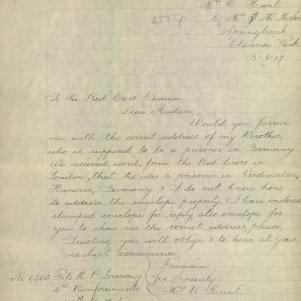 Mrs R Hunt
Springbank
Clarence Park
To the Red Cross Bureau,
Dear Madam
Would you favour
me, with the correct address of my Brother,
who is supposed to be a prisoner in Germany
We recieved word, from the Red Cross in
London, that he was a prisoner in
Hanover, Germany & I do not know how
to address the envelope properly, I have enclosed
stamped envelope for reply also envelope for
you to show me the correct address, please,
Trusting you will oblige & to hear at your
earliest convenience
I remain
Yrs Sincerely
Mrs R Hunt
Pte H. P.
4th Reinforcements